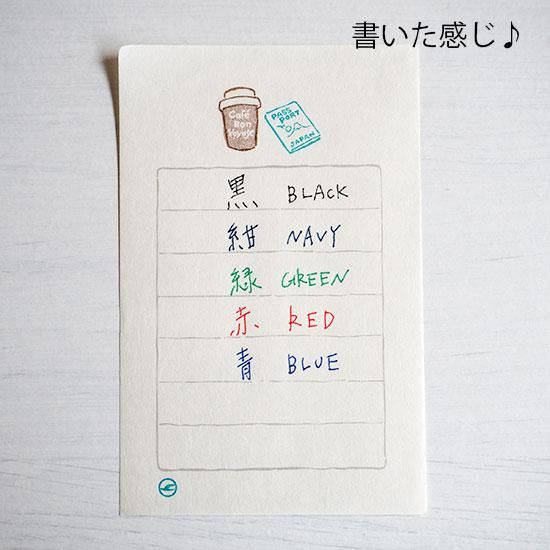 書いた感じ♪
Café
Bon
Voyage
PASS
PORT
JAPAN
黒 BLACK
紺 NAVY
緑 GREEN
赤 RED
青 BLUE